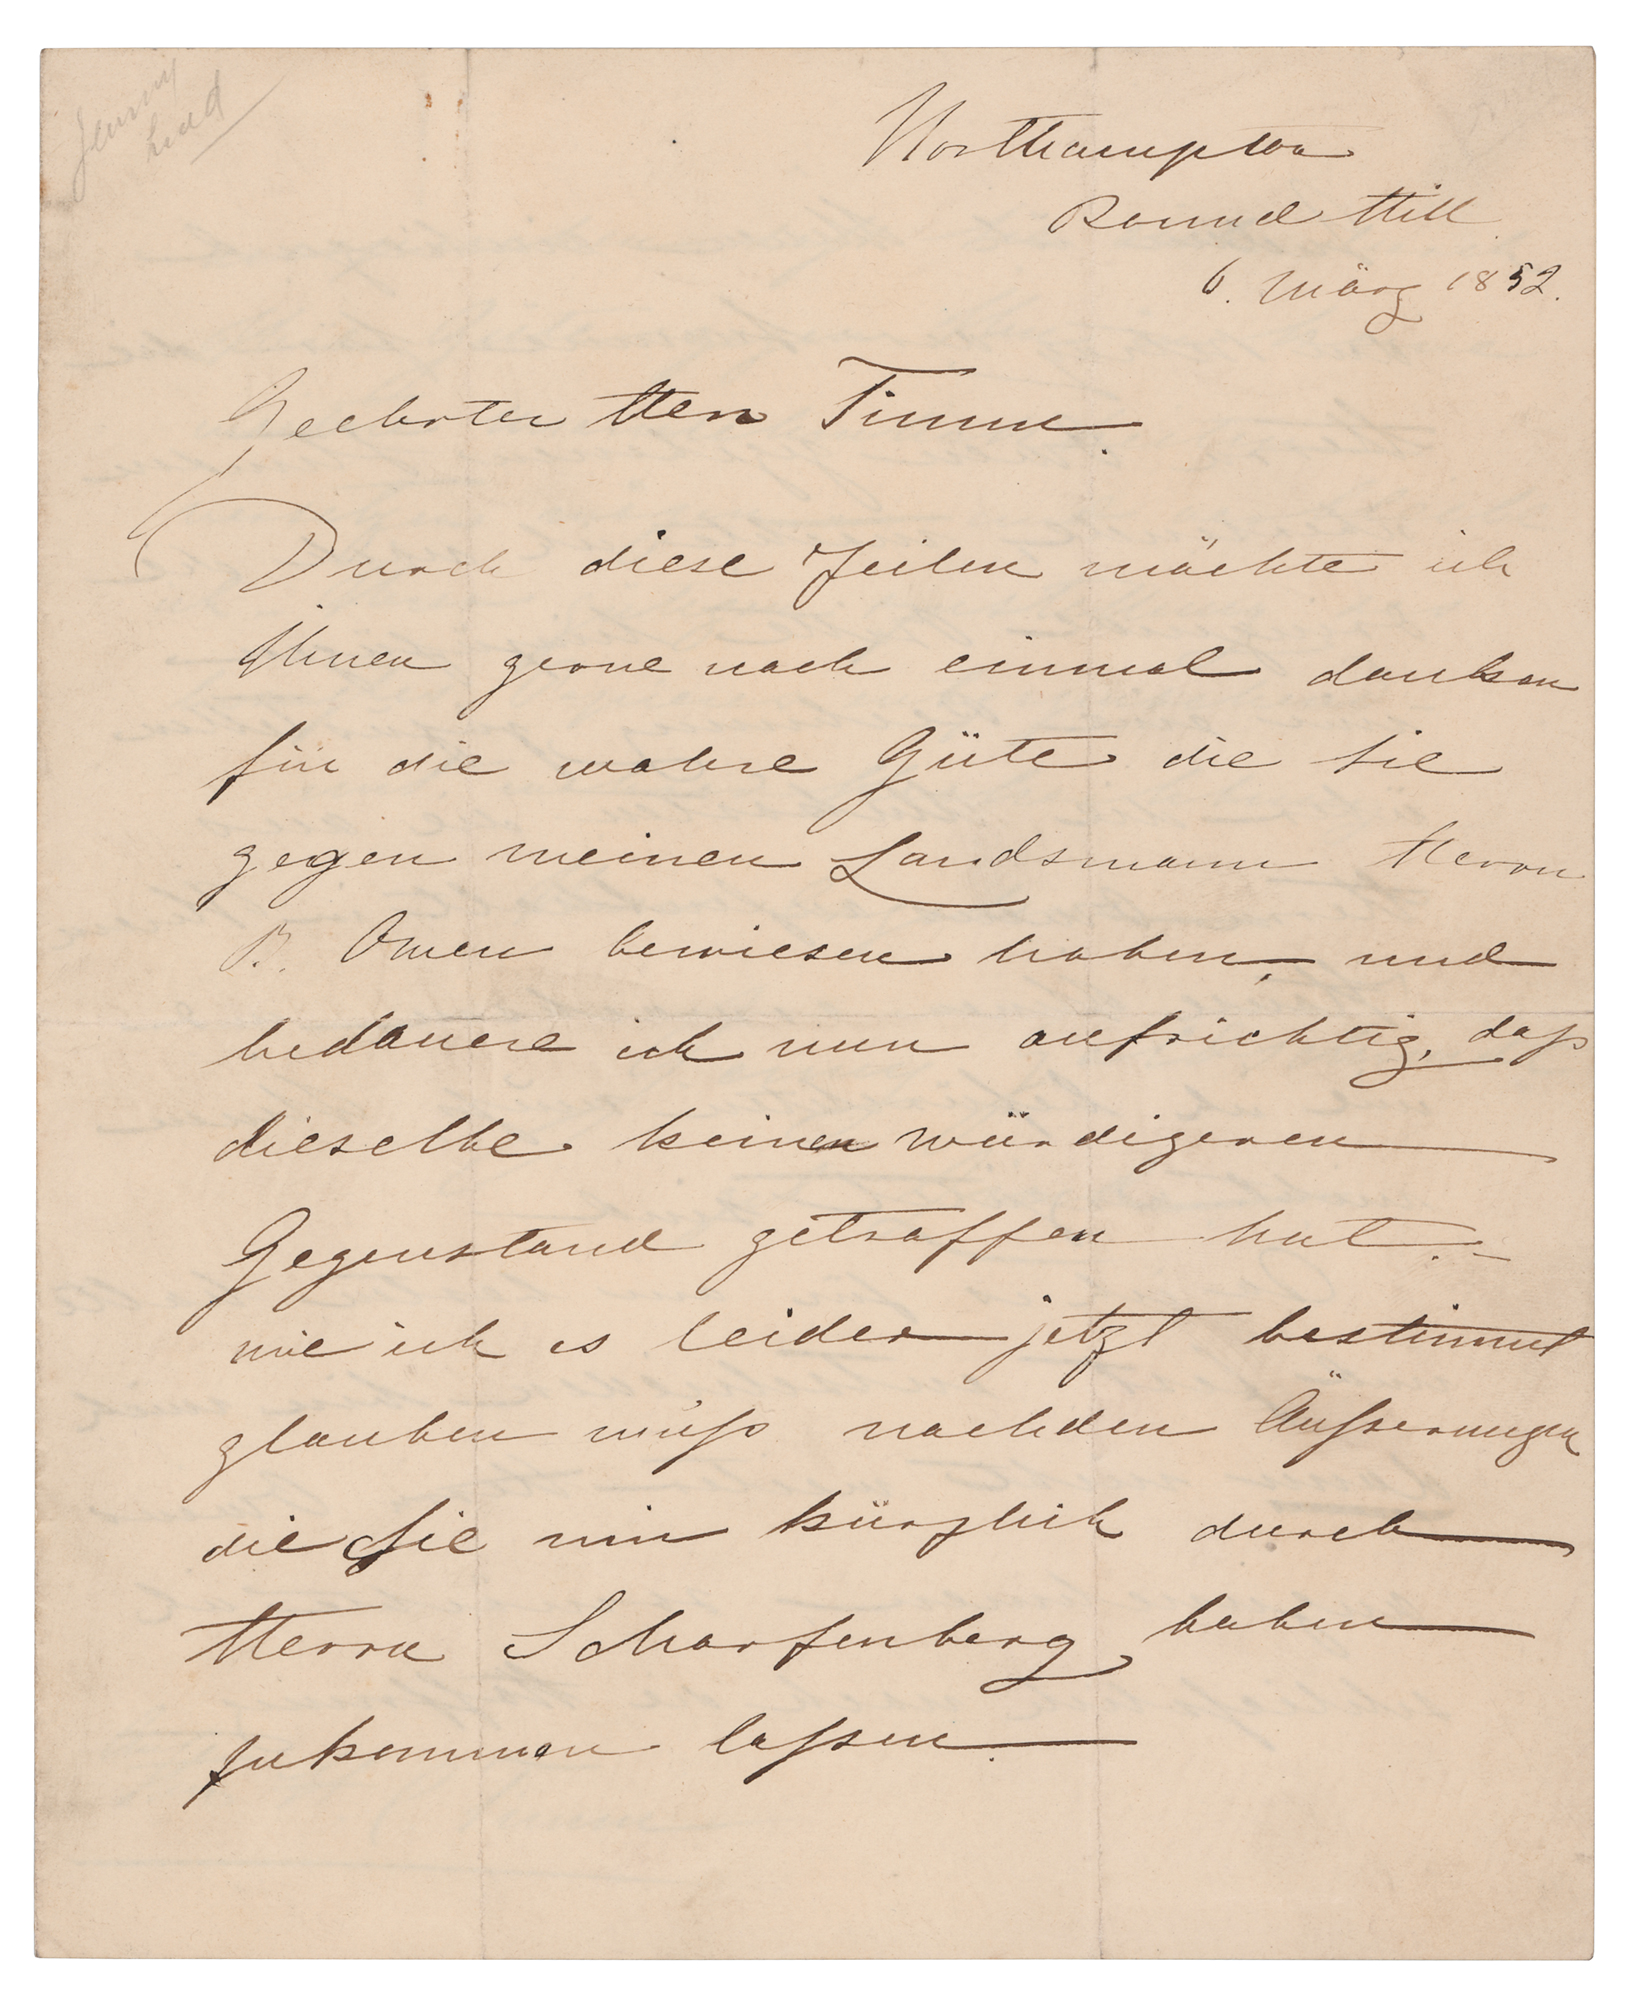 Jenny
Lind
Northampton
Round Hill
6. März 1852.
Geehrter Herr Timm.
Durch diese Zeilen möchte ich
Ihnen gerne noch einmal danken
für die wahre Güte die Sie
gegen meinen Landsmann Herrn
B. Owen bewiesen haben, und
bedauere ich nun aufrichtig, daß
dieselbe keinen würdigeren
Gegenstand getroffen hat. –
wie ich es leider jetzt bestimmt
glauben muß nach den Äußerungen
die Sie mir kürzlich durch
Herrn Scharfenberg haben
zukommen laßen.